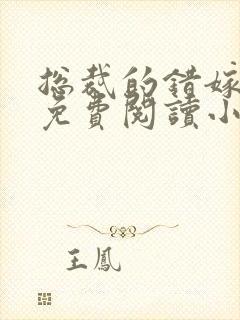 総裁的錯嫁
免費閱讀小
王鳳